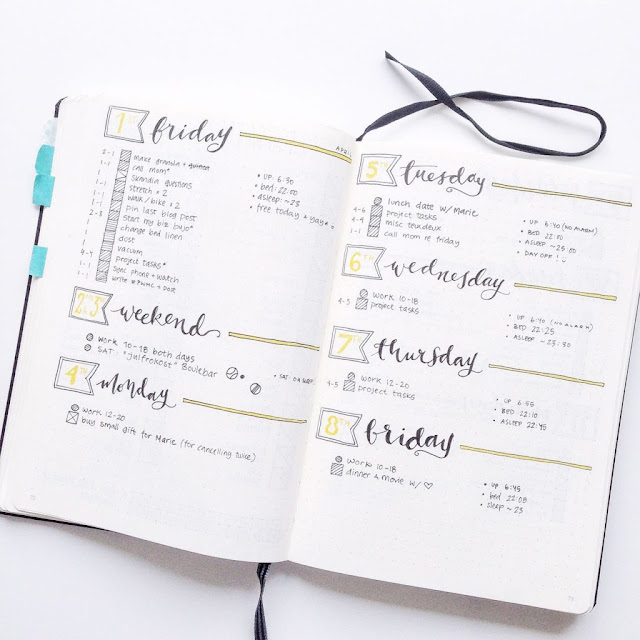 1ST friday
make granola +
call mom*
skandia questions
stretch × 2
walk/bike × 2
Pin last blog post
Start my biz bujo*
change bed linen
dust
vacuum
Project tasks*
Sync phone + watch
• UP: 6:30
• bed: 22:00
• asleep: ~23
• free today + yay
2ND & 3RD weekend
work 10-18 both days
SAT: "julfrokost" Boulebar
4TH monday
work 12-20
buy small gift for Marie (for cancelling twice)
5TH tuesday
lunch date w/Marie
4-6 project tasks
4-4 misc teuxdeux
1-1 call mom re friday
• UP 6:40 (NO ALARM)
• BED 22:10
• ASLEEP ~23:00
• DAY OFF!
6TH wednesday
work 10-18
4-3 project tasks
• UP 6:40 (NO ALARM)
• BED 22:25
• ASLEEP ~23:30
7TH thursday
work 12-20
4-5 project tasks
• UP 6:55
• BED 22:10
• ASLEEP 22:45
8TH friday
work 10-18
dinner & movie w/ ♡
• up 6:45
• bed 22:08
• sleep ~23